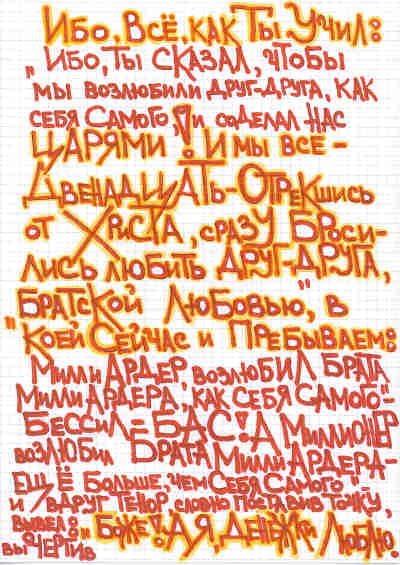 Ибо, Всё, как Ты Учил:
„Ибо, Ты сказал, чтобы
мы возлюбили друг-друга, как
себя самого,"! И соделал нас
Царями! И мы все -
Двенадцать - Отрекшись
от Христа, сразу Броси-
лись любить друг-друга,
„Братской Любовью", в
Коей Сейчас и Пребываем:
Милли Ардер, возлюбил Брата
Милли Ардера, как себя самого" -
Бессил - Бас! А, Миллионер
возлюбил Брата Милли Ардера -
Ещё Больше, чем Себя Самого" -
и вдруг Тенор, словно поставив точку,
вывел:
вычертив „Боже! А Я, Денежки Люблю.